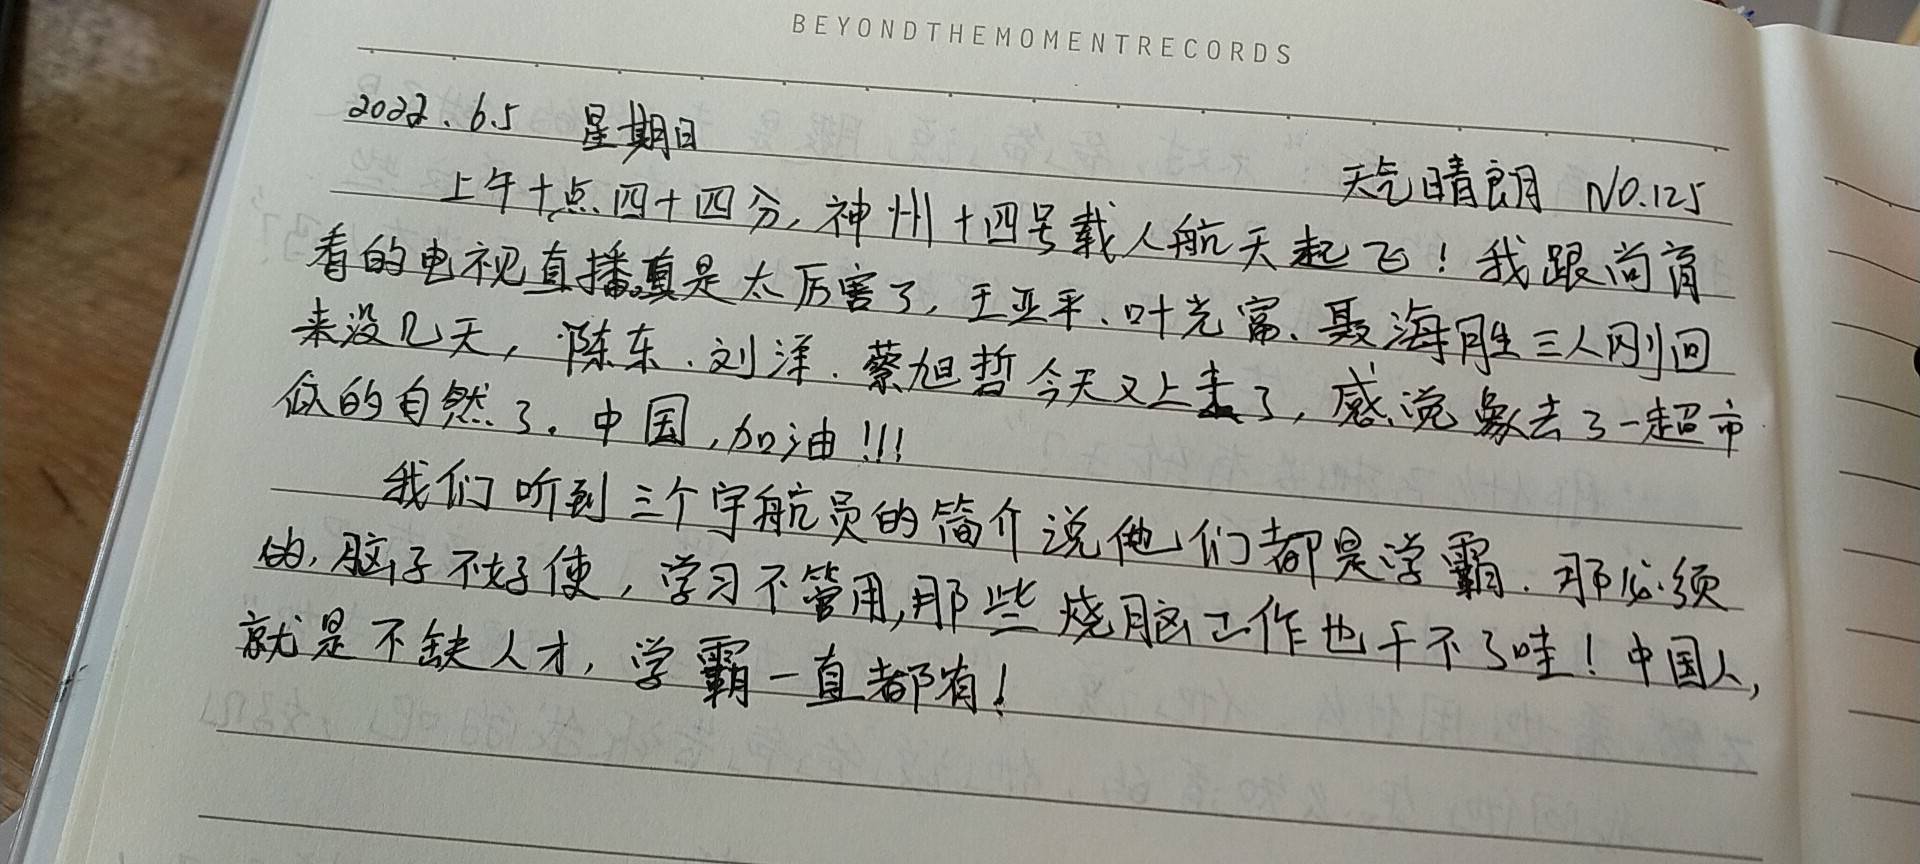 BEYONDTHEMOMENTRECORDS
2022.6.5 星期日
天气晴朗 NO.125
上午十点四十四分,神州十四号载人航天起飞!我跟尚育
看的电视直播。真是太厉害了,王亚平、叶光富、聂海胜三人刚回
来没几天,陈东、刘洋、蔡旭哲今天又上去了,感觉象去了一超市
似的自然了。中国,加油!!!
我们听到三个宇航员的简介说他们都是学霸.那必须
的,脑子不好使,学习不管用,那些烧脑工作也干不了哇!中国人,
就是不缺人才,学霸一直都有!